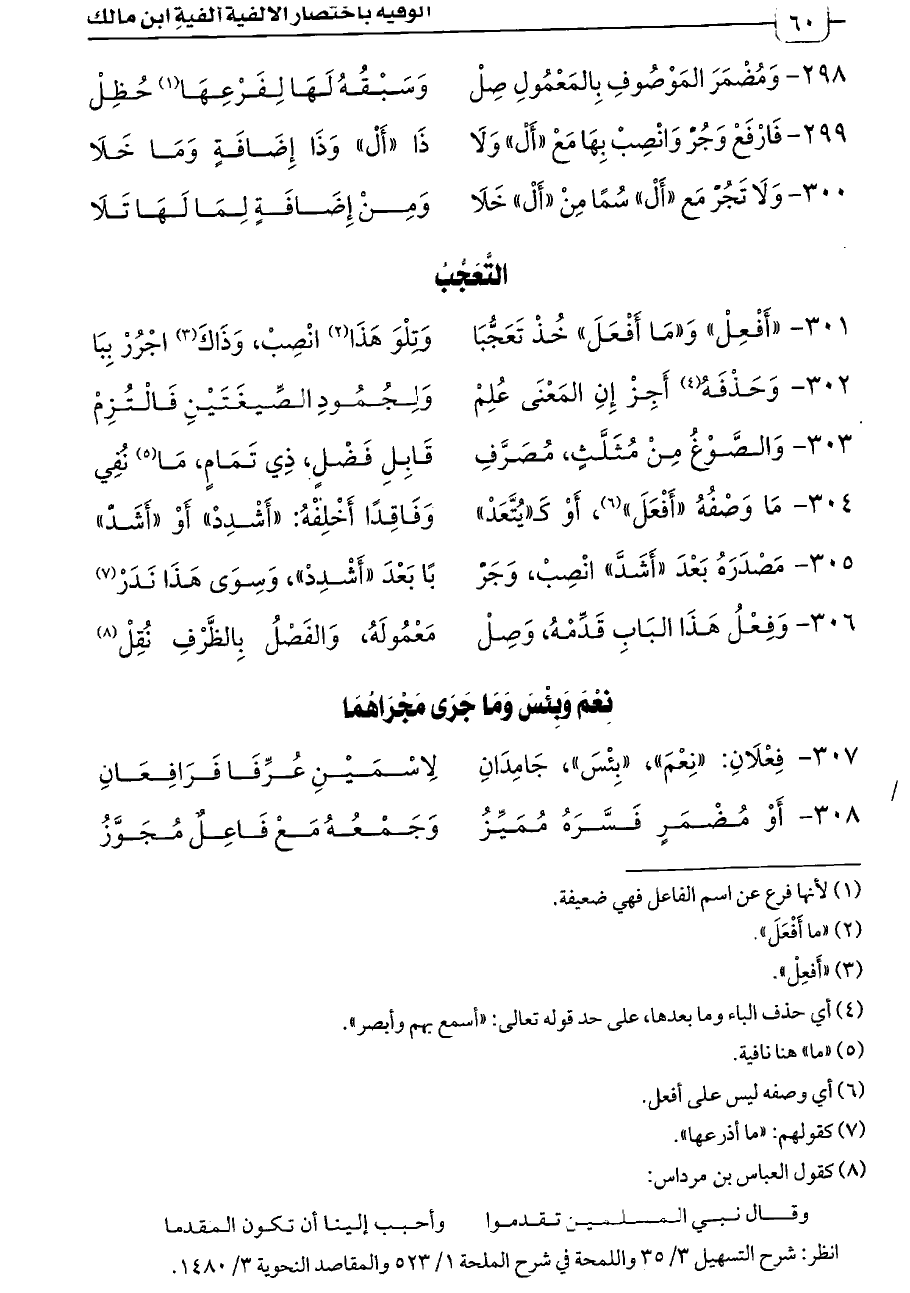 ٦٠
الوفيه باختصار الالفية ألفية ابن مالك
٢٩٨- وَمُضْمَرَ المَوْصُوفِ بِالمَعْمُولِ صِلْ وَسَبْقُهُ لَهَا لِفَرْعِهَا(١) حُظِلْ
٢٩٩- فَارْفَعْ وَجُرَّ وَانْصِبْ بِهَا مَعْ «أَلْ» وَلَا ذَا «أَلْ» وَذَا إِضَافَةٍ وَمَا خَلَا
٣٠٠- وَلَا تَجُرَّ مَع «أَلْ» سُمًا مِنْ «أَلْ» خَلَا وَمِنْ إِضَافَةٍ لِمَا لَهَا تَلَا
التَّعَجُّبُ
٣٠١- «أَفْعِلْ» وَ«مَا أَفْعَلَ» خُذْ تَعَجُّبَا وَتِلْوَ هَذَا(٢) انْصِبْ، وَذَاكَ(٣) اجْرُرْ بِبَا
٣٠٢- وَحَذْفَهُ(٤) أَجِزْ إِنِ المَعْنَى عُلِمْ وَلِجُمُودِ الصِّيغَتَيْنِ فَالْتُزِمْ
٣٠٣- وَالصَّوْغُ مِنْ مُثَلَّثٍ، مُصَرَّفِ قَابِلِ فَضْلٍ، ذِي تَمَامٍ، مَا(٥) نُفِي
٣٠٤- مَا وَصْفُهُ «أَفْعَلَ»(٦)، أَوْ كَـ«يُتَّعَدْ» وَفَاقِدًا أَخْلِفْهُ: «أَشْدِدْ» أَوْ «أَشَدّ»
٣٠٥- مَصْدَرَهُ بَعْدَ «أَشَدَّ» انْصِبْ، وَجَرّ بًا بَعْدَ «أَشْدِدْ»، وَسِوَى هَذَا نَدَرْ(٧)
٣٠٦- وَفِعْلُ هَذَا البَابِ قَدِّمْهُ، وَصِلْ مَعْمُولَهُ، وَالفَصْلُ بِالظَّرْفِ نُقِلْ(٨)
نِعْمَ وَبِئْسَ وَمَا جَرَى مَجْرَاهُمَا
٣٠٧- فِعْلَانِ: «نِعْمَ»، «بِئْسَ»، جَامِدَانِ لِاسْمَيْنِ عُرِّفَا فَرَافِعَانِ
٣٠٨- أَوْ مُضْمَرٍ فَسَّرَهُ مُمَيِّزُ وَجَمْعُهُ مَعْ فَاعِلٌ مُجَوَّزُ
(١) لأنها فرع عن اسم الفاعل فهي ضعيفة.
(٢) «ما أَفْعَلَ».
(٣) «أَفعِلْ».
(٤) أي حذف الباء وما بعدها، على حد قوله تعالى: «أسمع بهم وأبصر».
(٥) «ما» هنا نافية.
(٦) أي وصفه ليس على أفعل.
(٧) كقولهم: «ما أذرعها».
(٨) كقول العباس بن مرداس:
وقال نبي المسلمين تقدموا وأحبب إلينا أن تكون المقدما
انظر: شرح التسهيل ٣/ ٣٥ واللمحة في شرح الملحة ١/ ٥٢٣ والمقاصد النحوية ٣/ ١٤٨٠.